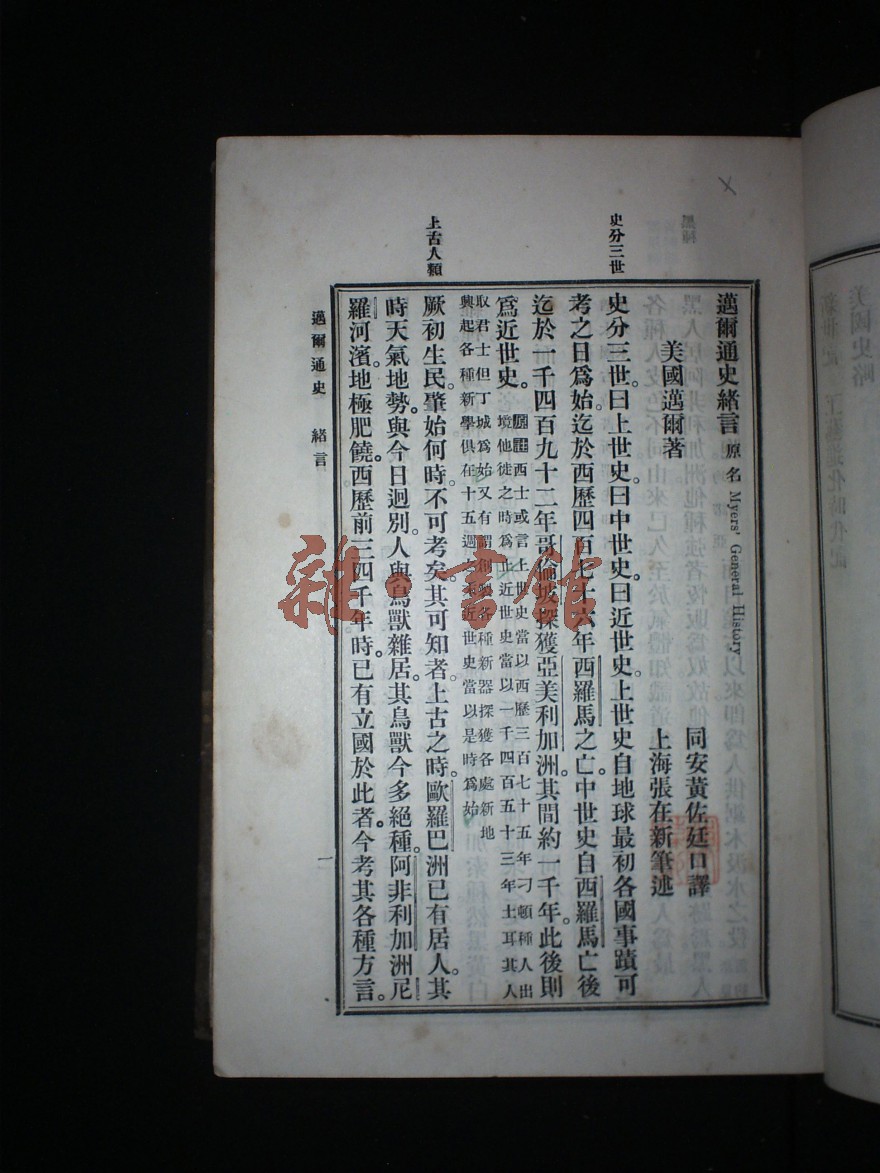 史分三世
上古人類
邁爾通史緒言 原名 Myers' General History
美國邁爾著
同安黃佐廷口譯
上海張在新筆述
史分三世。曰上世史。曰中世史。曰近世史。上世史自地球最初各國事蹟可
考之日爲始。迄於西歷四百七十六年西羅馬之亡。中世史自西羅馬亡後
迄於一千四百九十二年哥倫坡探獲亞美利加洲。其間約一千年。此後則
爲近世史。原註西士或言上世史當以西歷三百七十五年刁頓種人出
境他徙之時爲止近世史當以一千四百五十三年土耳其人
取君士但丁城爲始又有謂創製各種新器探獲各處新地
興起各種新學俱在十五週之末近世史當以是時爲始
厥初生民。肇始何時。不可考矣。其可知者。上古之時。歐羅巴洲已有居人。其
時天氣地勢。與今日迥別。人與鳥獸雜居。其鳥獸今多絕種。阿非利加洲尼
羅河濱。地極肥饒。西歷前三四千年時。已有立國於此者。今考其各種方言。
邁爾通史 緒言
一
雜·書館